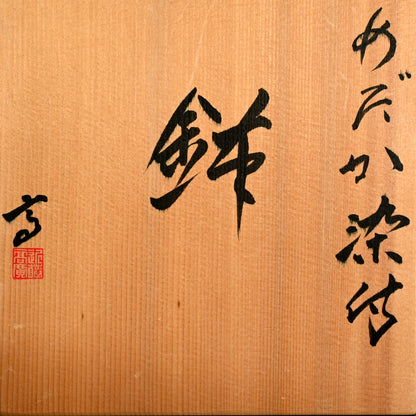 めだか染付
鉢
高